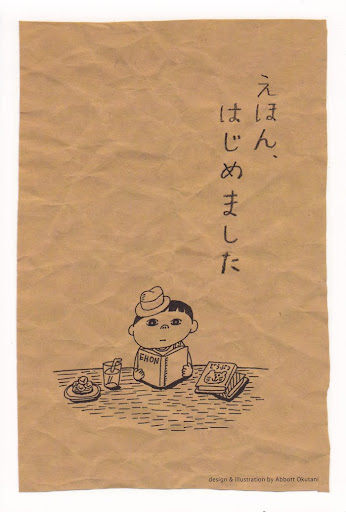 えほん、
はじめました
EHON
どうぶつ
design & illustration by Abbott Okutani